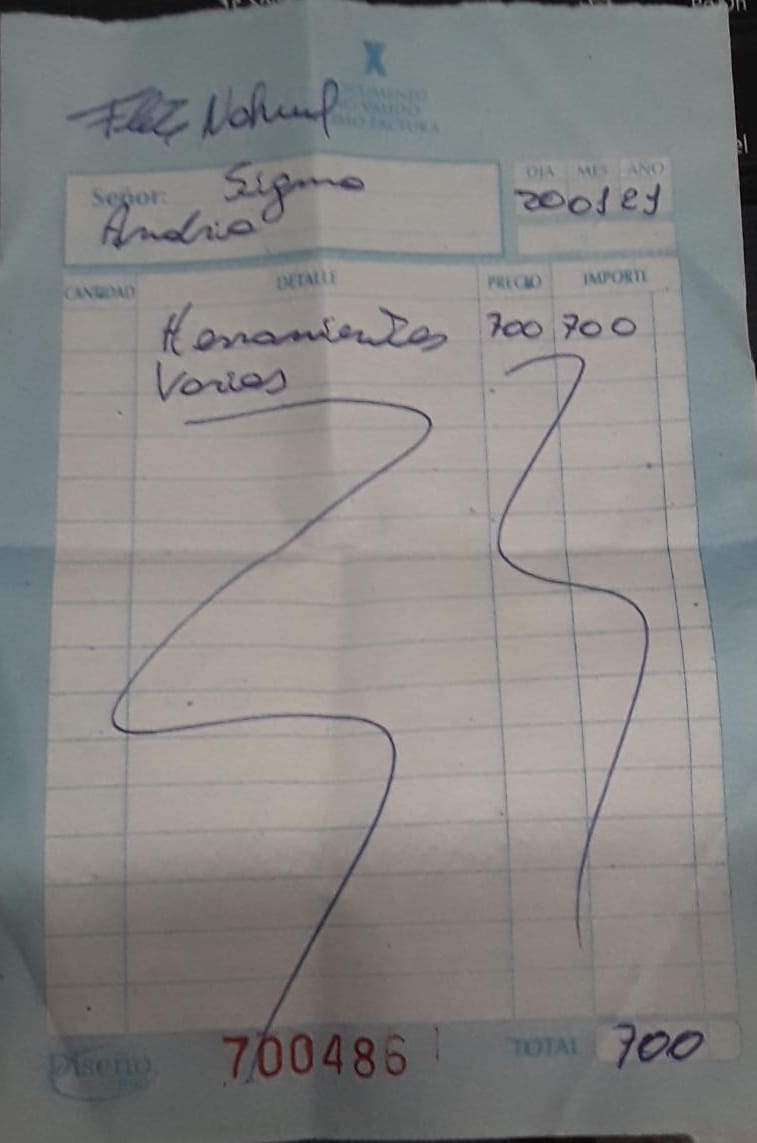 X
DOCUMENTO
NO VALIDO
COMO FACTURA
Nahuel
Señor: Sigma
DIA MES AÑO
20 01 21
CANTIDAD DETALLE PRECIO IMPORTE
Herramientas 700 700
Varias
Diseño
700486
TOTAL 700